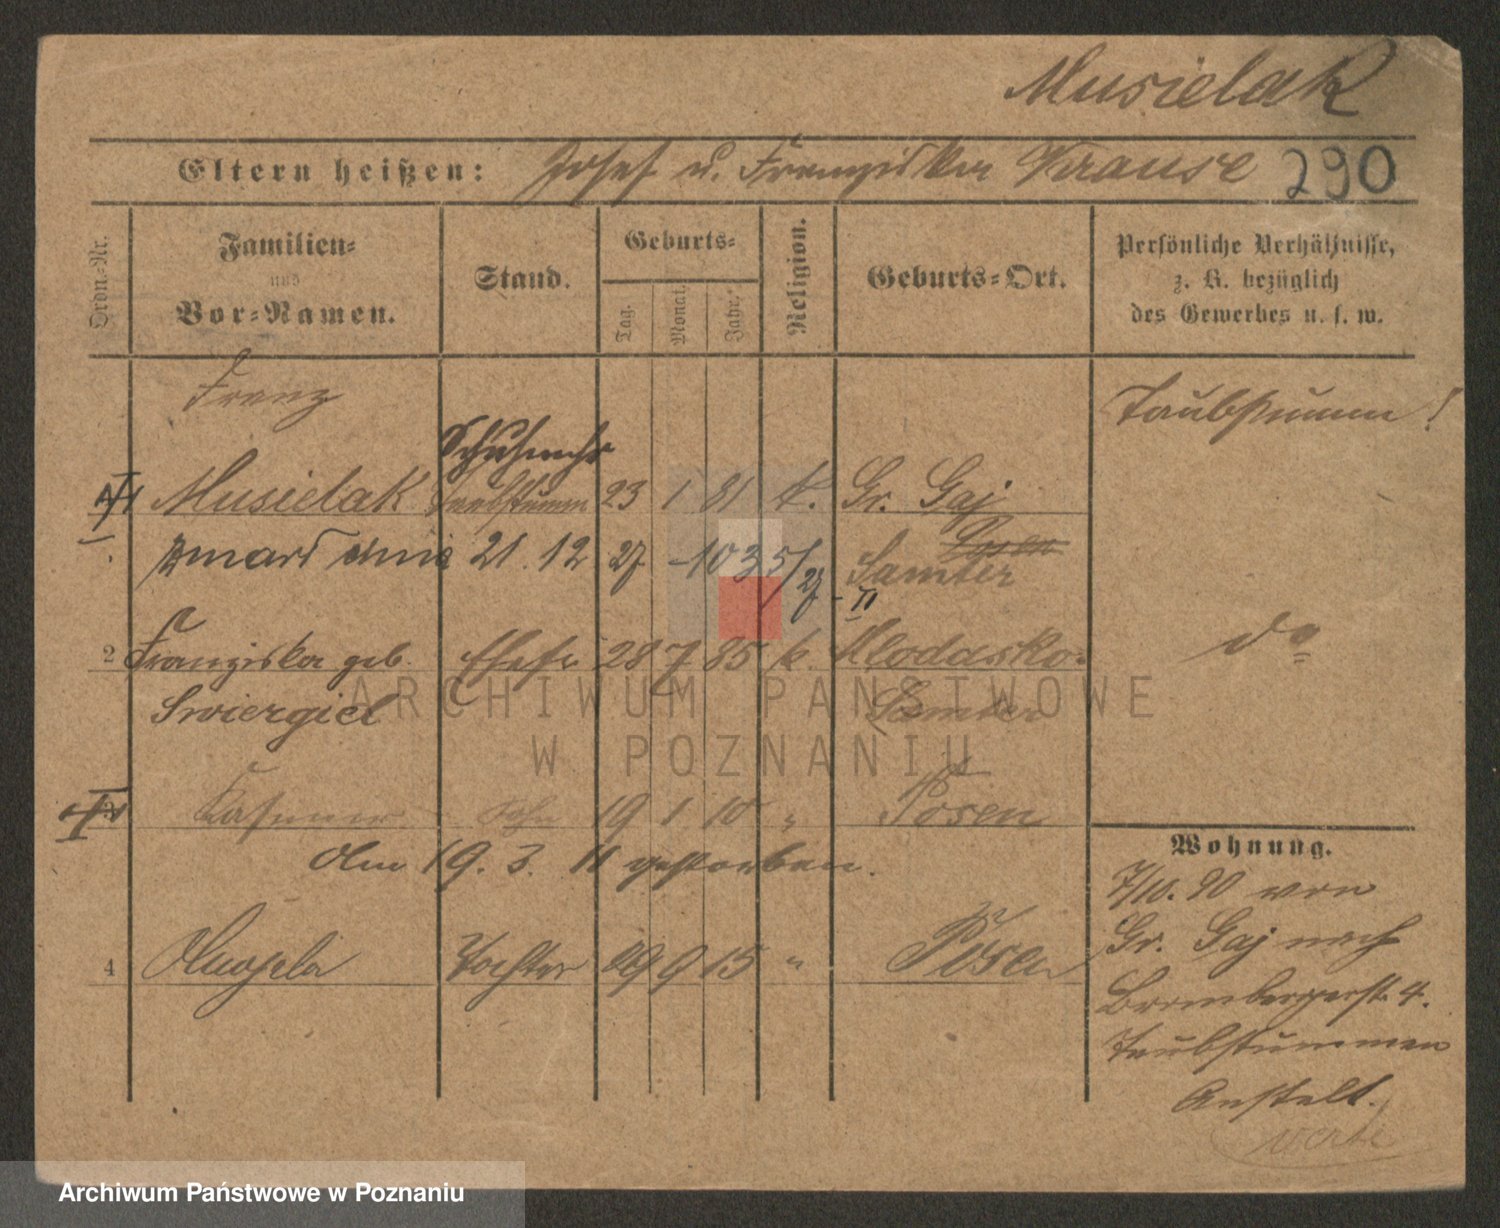 Musielak
Eltern heißen: Josef u. Franziska Krause 290
Ordn.-Nr.
Familien-
und
Vor-Namen.
Stand.
Geburts-
Tag.
Monat.
Jahr.
Religion.
Geburts-Ort.
Persönliche Verhältnisse,
z. B. bezüglich
des Gewerbes u. s. w.
Franz
Taubstumm!
Schuhmchr
Musielak Taubstumm 23 1 81 k. Gr. Gaj
Posen
zmarł dnia 21. 12 27 - 1035/27 - II Samter
2 Franziska geb. Ehefr 28 7 85 k. Klodzisko
do
Swiergiel Samter
Kasimir Sohn 19 1 10 " Posen
Am 19. 3. 11 gestorben.
4 Angela Tochter 29 9 15 " Posen
Wohnung.
7/10. 90 von
Gr. Gaj nach
Brombergerst. 4.
Taubstummen
Anstalt.
ARCHIWUM PAŃSTWOWE
W POZNANIU
Archiwum Państwowe w Poznaniu